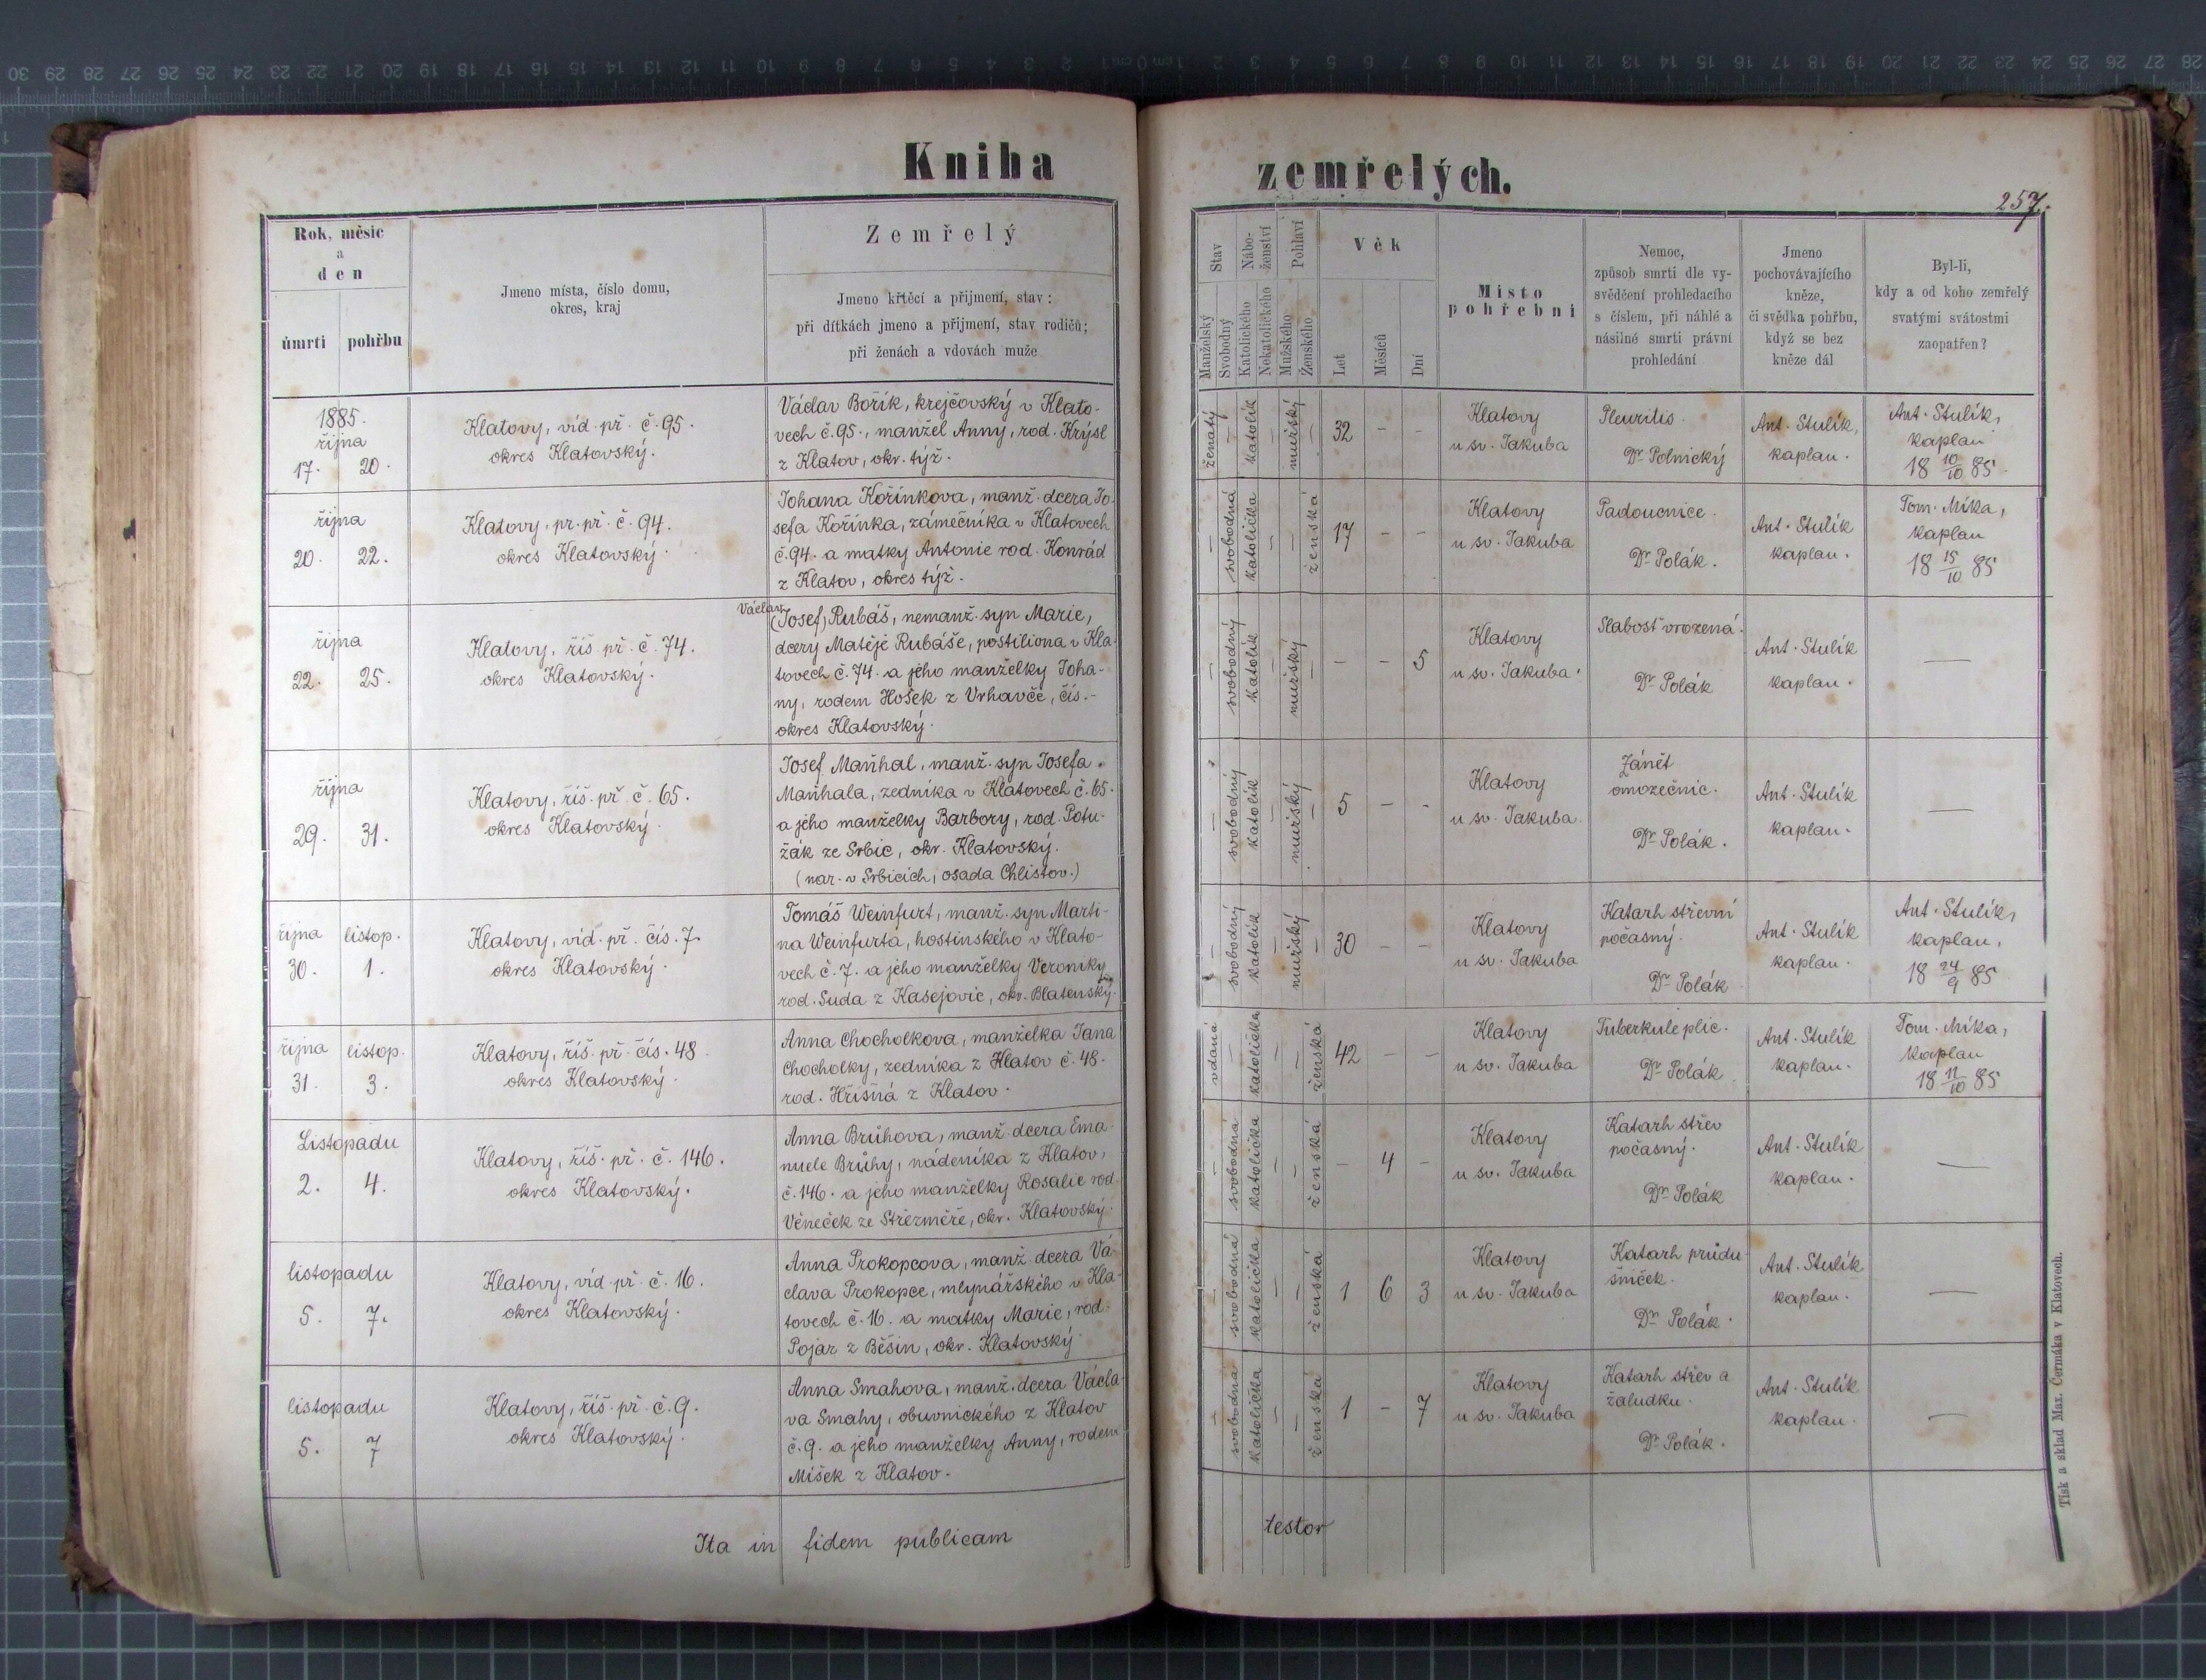 Kniha zemřelých.
257.
Rok, měsíc
a
den
úmrtí
pohřbu
Jmeno místa, číslo domu,
okres, kraj
Zemřelý
Jmeno křtěcí a přijmení, stav:
při dítkách jmeno a přijmení, stav rodičů;
při ženách a vdovách muže
Stav
Manželský
Svobodný
Nábo-
ženství
Katolického
Nekatolického
Pohlaví
Mužského
Ženského
Věk
Let
Měsíců
Dní
Místo
pohřební
Nemoc,
způsob smrti dle vy-
svědčení prohledacího
s číslem, při náhlé a
násilné smrti právní
prohledání
Jmeno
pochovávajícího
kněze,
či svědka pohřbu,
když se bez
kněze dál
Byl-li,
kdy a od koho zemřelý
svatými svátostmi
zaopatřen?
1885.
října
17. 20.
Klatovy, víd. př. č. 95.
okres Klatovský.
Václav Bořík, krejčovský v Klato-
vech č. 95., manžel Anny, rod. Krýsl
z Klatov, okr. týž.
ženatý – katolík – mužský –
32 - -
Klatovy
u sv. Jakuba
Pleuritis.
Dr Polnický
Ant. Stulík,
kaplan.
Ant. Stulík,
kaplan
18 10/10 85.
října
20. 22.
Klatovy, pr. př. č. 94.
okres Klatovský.
Johana Kořínkova, manž. dcera Jo-
sefa Kořínka, zámečníka v Klatovech
č. 94. a matky Antonie rod. Konrád
z Klatov, okres týž.
– svobodná katolička – – ženská
17 - -
Klatovy
u sv. Jakuba
Padoucnice.
Dr Polák.
Ant. Stulík
kaplan.
Tom. Míka,
kaplan
18 15/10 85
října
22. 25.
Klatovy, říš. př. č. 74.
okres Klatovský.
Václav
(Josef) Rubáš, nemanž. syn Marie,
dcery Matěje Rubáše, postiliona v Kla-
tovech č. 74. a jeho manželky Joha-
ny, rodem Hošek z Vrhavče, čís. -
okres Klatovský.
– svobodný katolík – mužský –
- - 5
Klatovy
u sv. Jakuba.
Slabost vrozená.
Dr Polák
Ant. Stulík
kaplan.
—
října
29. 31.
Klatovy, říš. př. č. 65.
okres Klatovský.
Josef Maňhal, manž. syn Josefa
Maňhala, zedníka v Klatovech č. 65.
a jeho manželky Barbory, rod. Potu-
žák ze Srbic, okr. Klatovský.
(nar. v Srbicích, osada Chlistov.)
– svobodný katolík – mužský –
5 - -
Klatovy
u sv. Jakuba.
Zánět
omozečnic.
Dr Polák.
Ant. Stulík
kaplan.
—
října listop.
30. 1.
Klatovy, víd. př. čís. 7.
okres Klatovský.
Tomáš Weinfurt, manž. syn Marti-
na Weinfurta, hostinského v Klato-
vech č. 7. a jeho manželky Veroniky
rod. Suda z Kasejovic, okr. Blatenský.
– svobodný katolík – mužský –
30 - -
Klatovy
u sv. Jakuba
Katarh střevní
počasný.
Dr Polák
Ant. Stulík
kaplan.
Ant. Stulík,
kaplan,
18 24/9 85
října listop.
31. 3.
Klatovy, říš. př. čís. 48
okres Klatovský.
Anna Chocholkova, manželka Jana
Chocholky, zedníka z Klatov č. 48.
rod. Hříšná z Klatov.
vdaná – katolička – – ženská
42 - -
Klatovy
u sv. Jakuba
Tuberkule plic.
Dr Polák
Ant. Stulík
kaplan.
Tom. Míka,
kaplan
18 11/10 85
Listopadu
2. 4.
Klatovy, říš. př. č. 146.
okres Klatovský.
Anna Brůhova, manž. dcera Ema-
nuele Brůhy, nádeníka z Klatov,
č. 146. a jeho manželky Rosalie rod.
Věneček ze Střezměře, okr. Klatovský.
– svobodná katolička – – ženská
- 4 -
Klatovy
u sv. Jakuba
Katarh střev
počasný.
Dr Polák
Ant. Stulík
kaplan.
—
listopadu
5. 7.
Klatovy, víd. př. č. 16.
okres Klatovský.
Anna Prokopcova, manž. dcera Vá-
clava Prokopce, mlynářského v Kla-
tovech č. 16. a matky Marie, rod.
Pojar z Běšin, okr. Klatovský
– svobodná katolička – – ženská
1 6 3
Klatovy
u sv. Jakuba
Katarh průdu-
šniček.
Dr Polák.
Ant. Stulík
kaplan.
—
listopadu
5. 7
Klatovy, říš. př. č. 9.
okres Klatovský.
Anna Smahova, manž. dcera Václa-
va Smahy, obuvnického z Klatov
č. 9. a jeho manželky Anny, rodem
Míšek z Klatov.
– svobodna katolička – – ženská
1 - 7
Klatovy
u sv. Jakuba
Katarh střev a
žaludku.
Dr Polák.
Ant. Stulík
kaplan.
—
Ita in fidem publicam testor
Tisk a sklad Max. Čermáka v Klatovech.